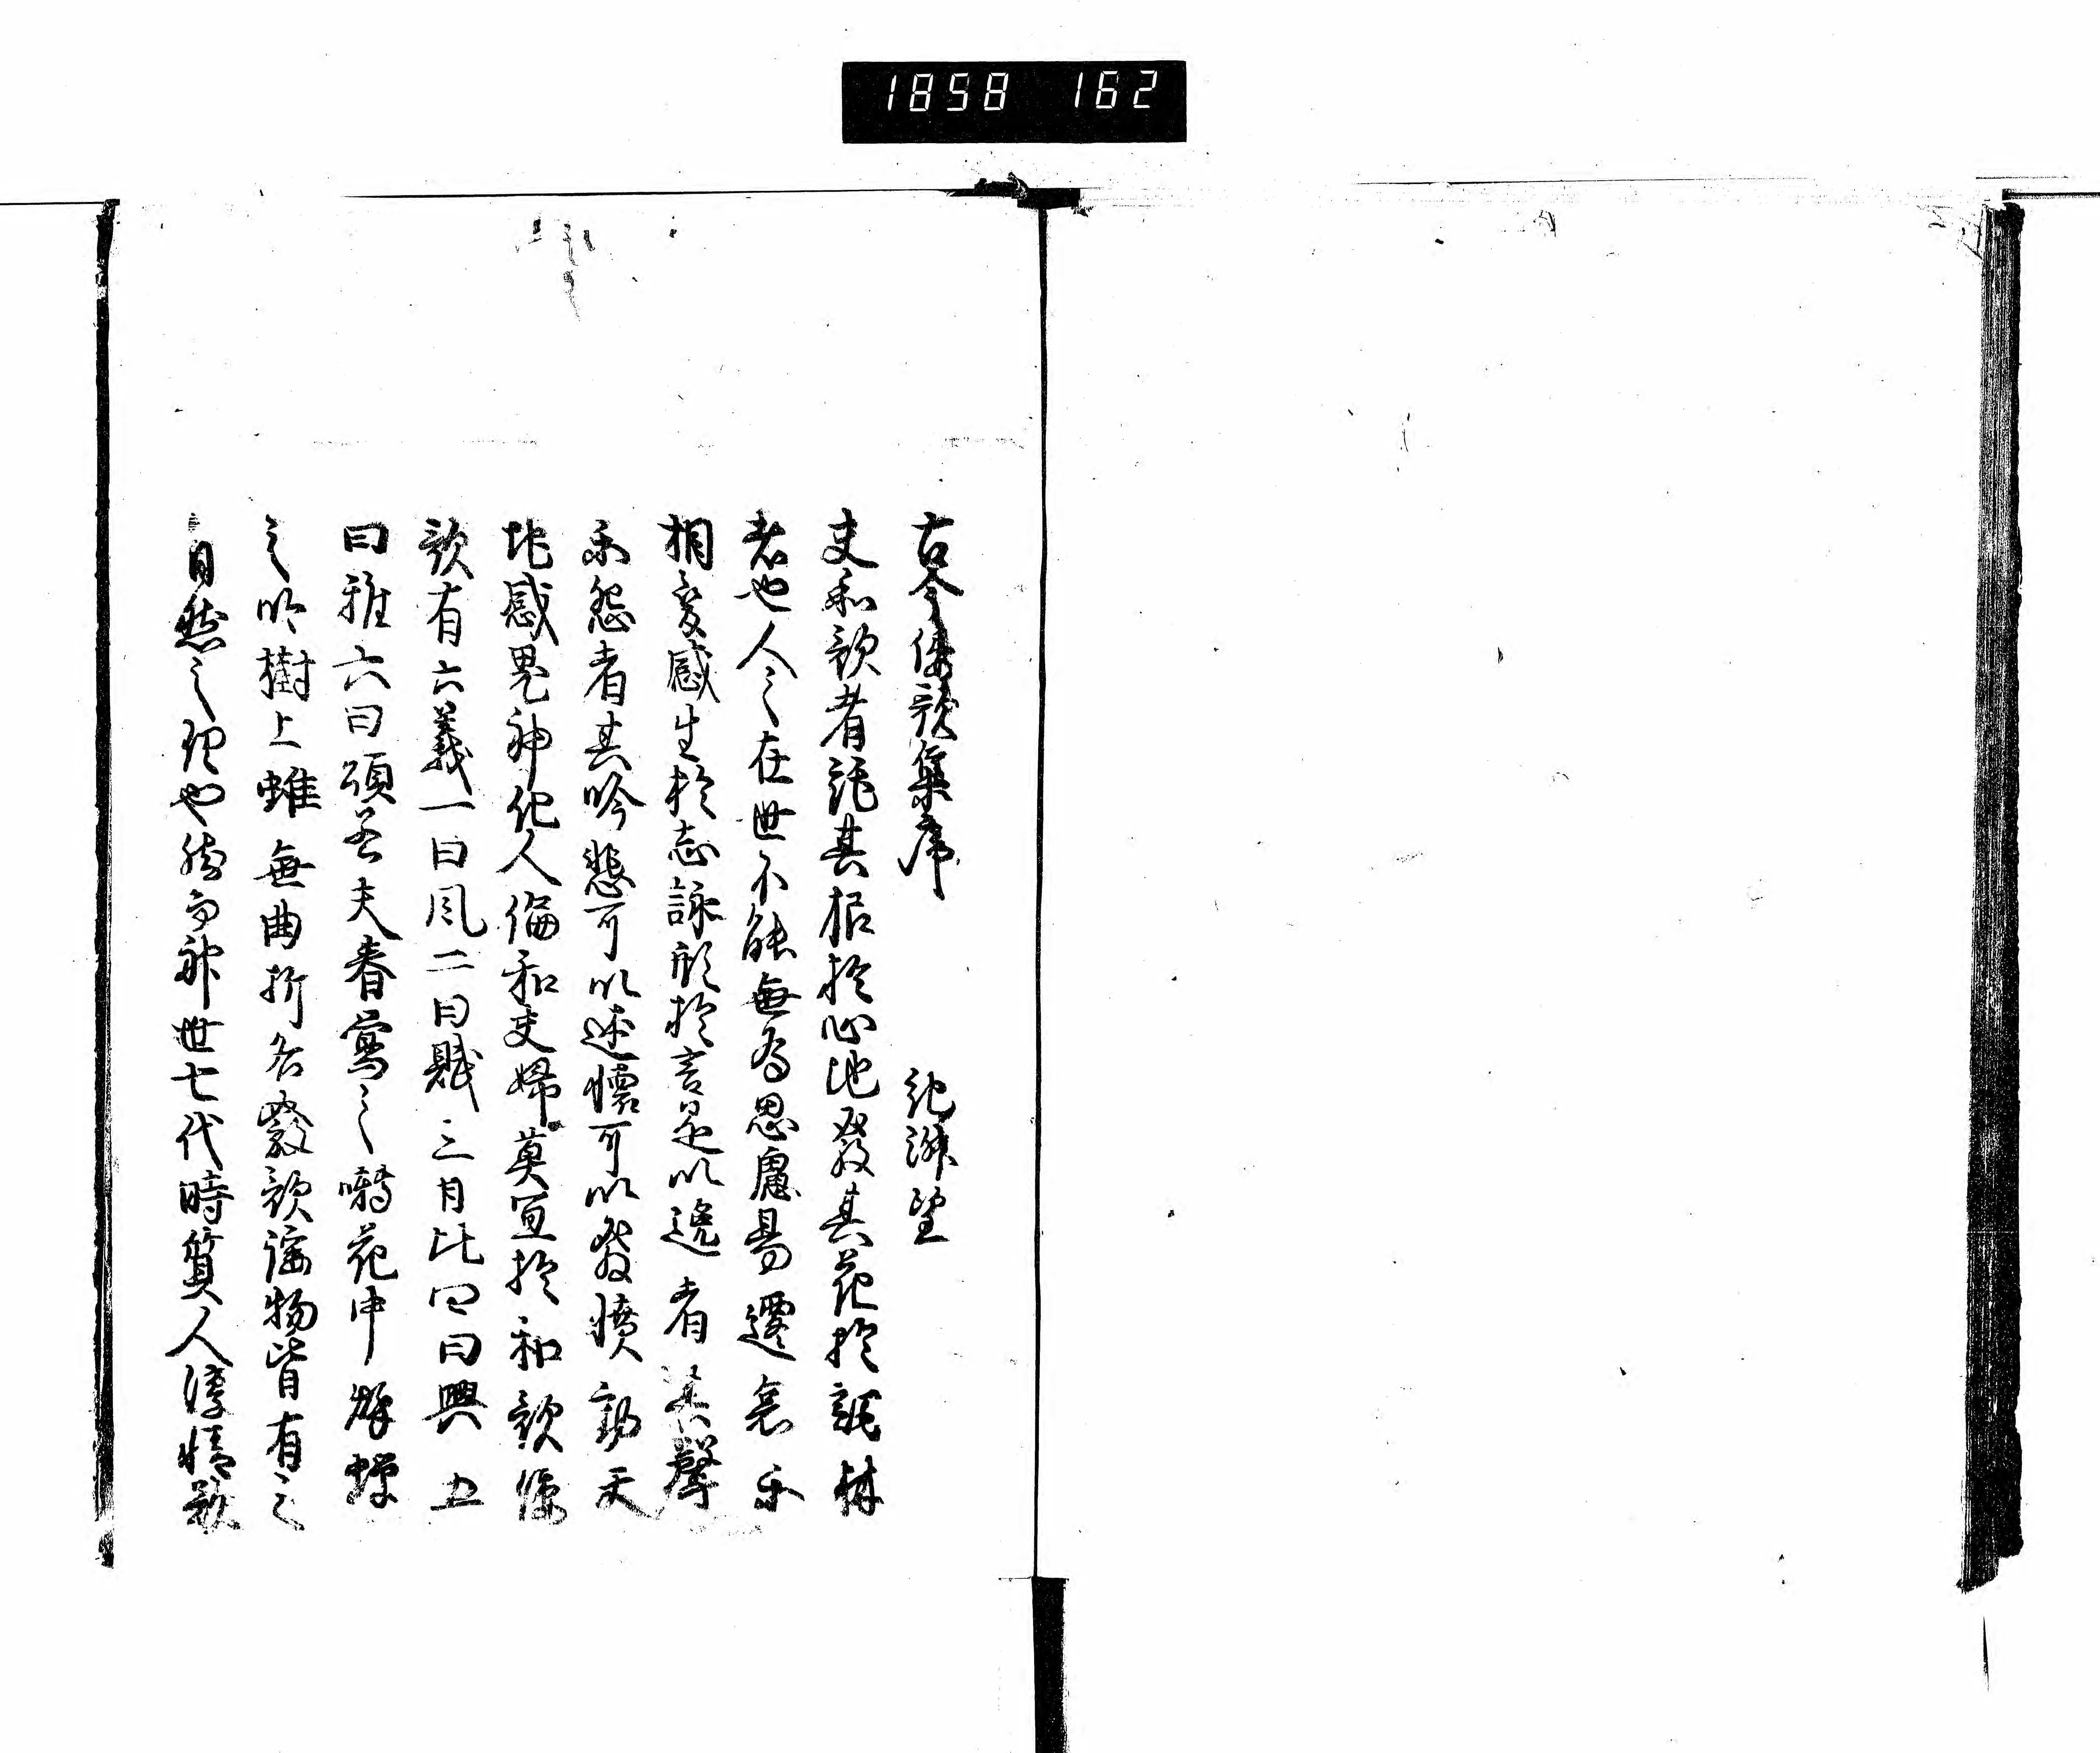 1858 162
古今倭歌集序 紀淑望
夫和歌者託其根於心地發其花於詞林
者也人々在世不能無為思慮易遷哀樂
相變感生於志詠形於言是以逸者其聲
楽怨者其吟悲可以述懐可以發憤動天
地感鬼神化人倫和夫婦莫宜於和歌倭
歌有六義一曰風二曰賦三曰比四曰興五
曰雅六曰頌若夫春鶯之囀花中秋蝉
之吟樹上雖無曲折各發歌謡物皆有之
自然之理也然而神世七代時質人淳情欲